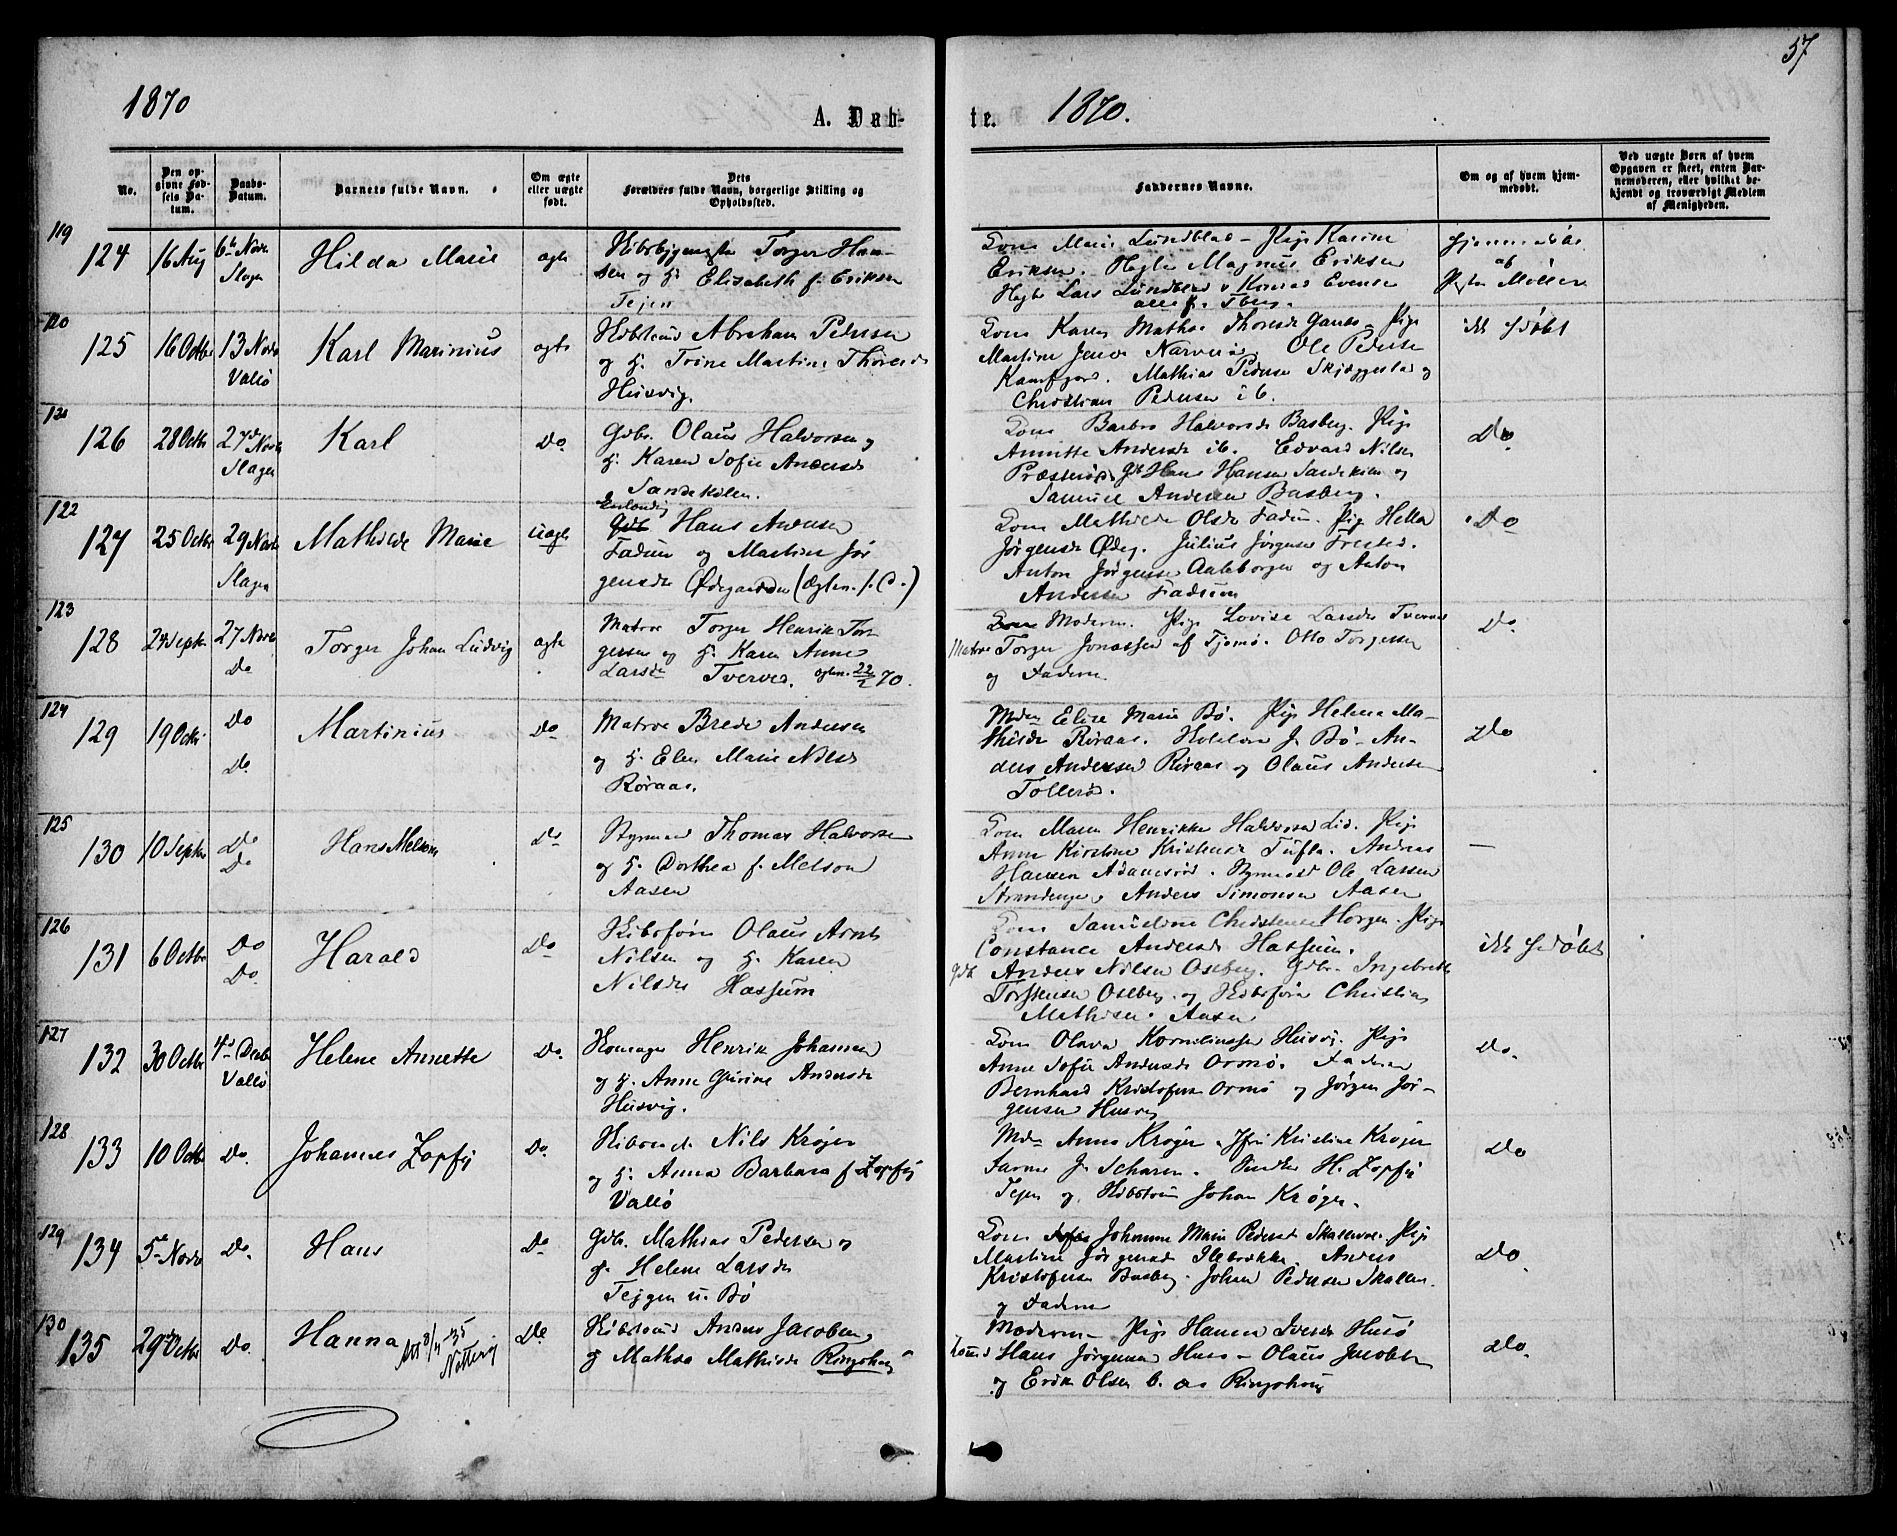 57
1870
A. Døb-
te.
1870.
No.
Den op-
givne Fød-
sels Da-
tum.
Daabs-
Datum.
Barnets fulde Navn.
Om ægte
eller uægte
født.
Dets
Forældres fulde Navn, borgerlige Stilling og
Opholdssted.
Faddernes Navne.
Om og af hvem hjem-
medøbt.
Ved uægte Børn af hvem
Opgaven er skeet, enten Bar-
nemoderen, eller hvilket be-
kjendt og troværdigt Medlem
af Menigheden.
119
124
16 Aug
6te Novr
Slagen
Hilda Marie
ægte
Skibsbygmester Torger Han-
sen og H. Elisabeth f. Eriksen
Tejen
Gone Marie Lundblad - Pige Karine
Eriksen. Magnus Eriksen
Lars Lundblad Konrad Evensen
alle f. Tberg.
hjemmedøbt
af
Møller
120
125
16 Octbr
13 Novbr
Vallø
Karl Marinius
ægte
Abraham Pedersen
og H. Trine Martine Thoresdr
Husvig.
Gone Karen Mathea Thoresdr Pige
Martine Jensdr Narverød Ole Pedersen
Kamfjord. Mathias Pedersen Skjæggestad og
Christian Pedersen ib.
ikke hjdøbt
121
126
28 Octbr
27de Novbr
Slagen
Karl
Do
Gdbr. Olaus Halvorsen og
H. Karen Sofie Andersdr
Sandekilen.
Gone Barbro Halvorsdr Basberg. Pige
Annette Andersdr ib. Edvard Nilsen
Præsterød Gdb Hans Hansen Sandekilen og
Samuel Andersen Basberg.
Do
122
127
25 Octbr
29 Novbr
Slagen
Mathilde Marie
uægte
Hans Andersen
Fadum og Martine Jør
gensdr Ødegaarden (Ægtesk. f. C.)
Gone Mathilde Olsdr Fadum. Pige Hella
Jørgensdr Ødeg. Julius Jørgensen Trested.
Anton Jørgensen Aaleborgen og Anton
Andersen Fadum
Do
123
128
24 Septbr
27 Novbr
Do
Torger Johan Ludvig
ægte
Matros Torger Henrik Tor
gersen og H. Karen Anne
Larsdr Tverved. 22/2 70.
Moderen. Pige Lovise Larsdr Tverved
Matros Torger Jonassen af Tjømø. Otto Torgersen
og Faderen.
Do
124
129
19 Octbr
Do
Do.
Martinius
Do
Matros Brede Andersen
og H. Elen Marie Nilsdr
Røraas.
Elise Marie Bø. Pige Helene Ma-
thisdr Røraas. J. Bø - An-
ders Andersen Røraas og Olaus Andersen
Tollerød.
Do
125
130
10 Septbr
Do
Do
Hans Melsom
Do
Styrmand Thomas Halvorsen
og H. Dorthea f. Melsom
Aasen
Gone Maren Henrikke Halvorsen Lid. Pige
Anne Kirstine Kristensdr Tufte. Andreas
Hansen Adamsrød. Styrmand Ole Larsen
Strandengen, Anders Simonsen Aasen
—
126
131
6 Octbr
Do
Do.
Harald
Do
Skibsfører Olaus Arnt
Nilsen og H. Karen
Nilsdr Hassum
Gone Samueline Christensen Horgen. Pige
Constance Andersdr Hassum.
Gdb Anders Nilsen Oseberg. Gdbr. Ingebret
Torstensen Oseberg og Skibsfører Christian
Mathisen. Aasen
ikke hjdøbt
127
132
30 Octbr
4de Decbr
Vallø
Helene Annette
Do.
Skomager Henrik Johansen
og H. Anne Gurine Andersdr
Husvig.
Gone Olava Kornelius Husvig. Pige
Anne Sofie Andersdr Ormø. Faderen
Bernhard Kristofersen Ormø og Jørgen Jør-
gensen Husvig
Do.
128
133
10 Octbr
Do.
Johannes Zopfy
Do.
Nils Krøger
og H. Anna Barbara f. Zopfy
Vallø
Anne Krøger Jfr Kristine Krøger
H. Zopfy
Tejen og Johan Krøger.
Do
129
134
5te Novbr
Do.
Hans
Do
Gdb. Mathias Pedersen og
H. Helene Larsdr
Tejgen u. Bø
Gone Johanne Marie Pedersdr Skallevold. Pige
Martine Jørgensdr Ilebrække, Anders
Kristofersen Basberg. Johan Pedersen Skallev.
og Faderen
Do
130
135
29de Octbr
Do.
Hanna
Att 8/4 -35
Nøtterøy
Do
Anders Jacobsen
og Mathea Mathisdr Ringshaug
Moderen - Pige Hanna Iversdr Husø
Hans Jørgensen Husø - Olaus Jacobsen
og Erik Olsen Ringshaug
Do.